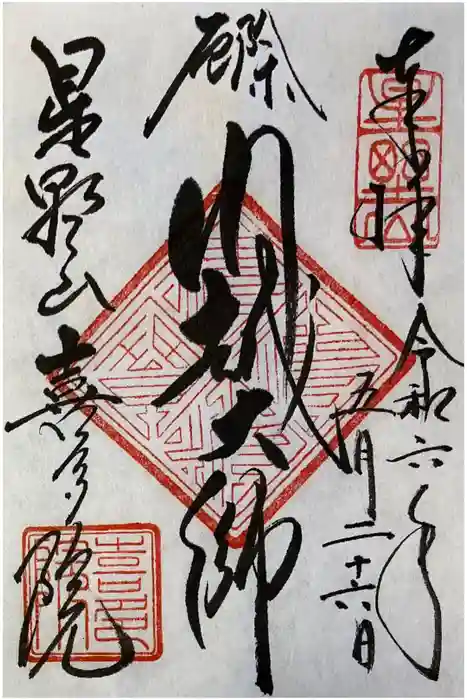 奉拝
令和六年
五月二十六日
厄除
川越大師
星野山 喜多院
喜多院